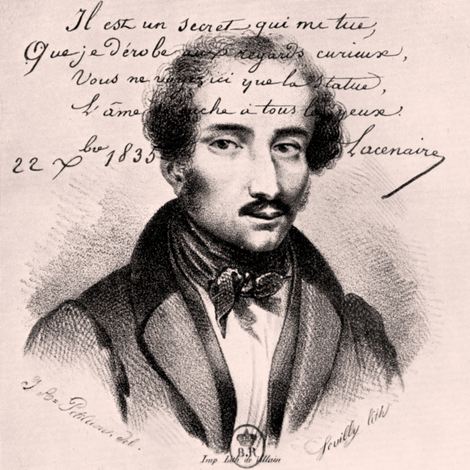 Il est un secret qui me tue,
Que je dérobe aux regards curieux,
Vous ne voyez ici que la statue,
L'âme se cache à tous les yeux.
22 Xbre 1835 Lacenaire
del.
lith
B.R
Imp. Lith de Villain